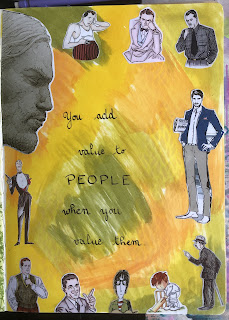 You add
value to
PEOPLE
when you
value them.